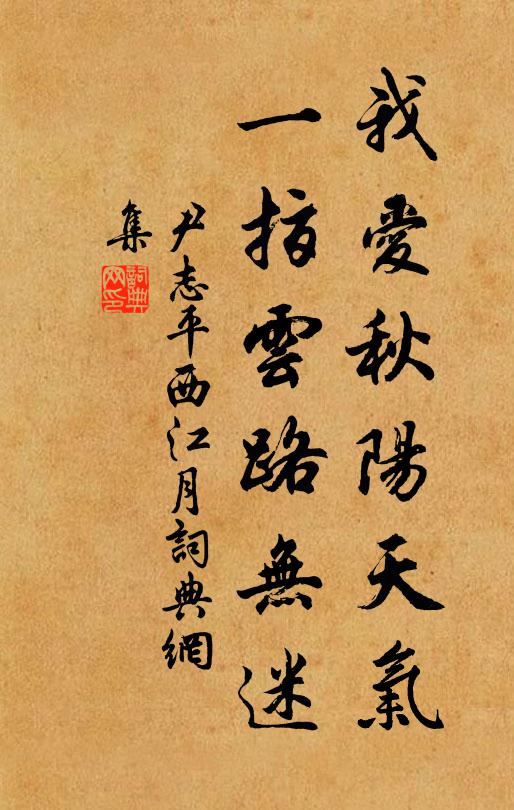 我愛秋陽天氣
一指雲路無迷
尹志平西江月詞典網
集
詞典
网印